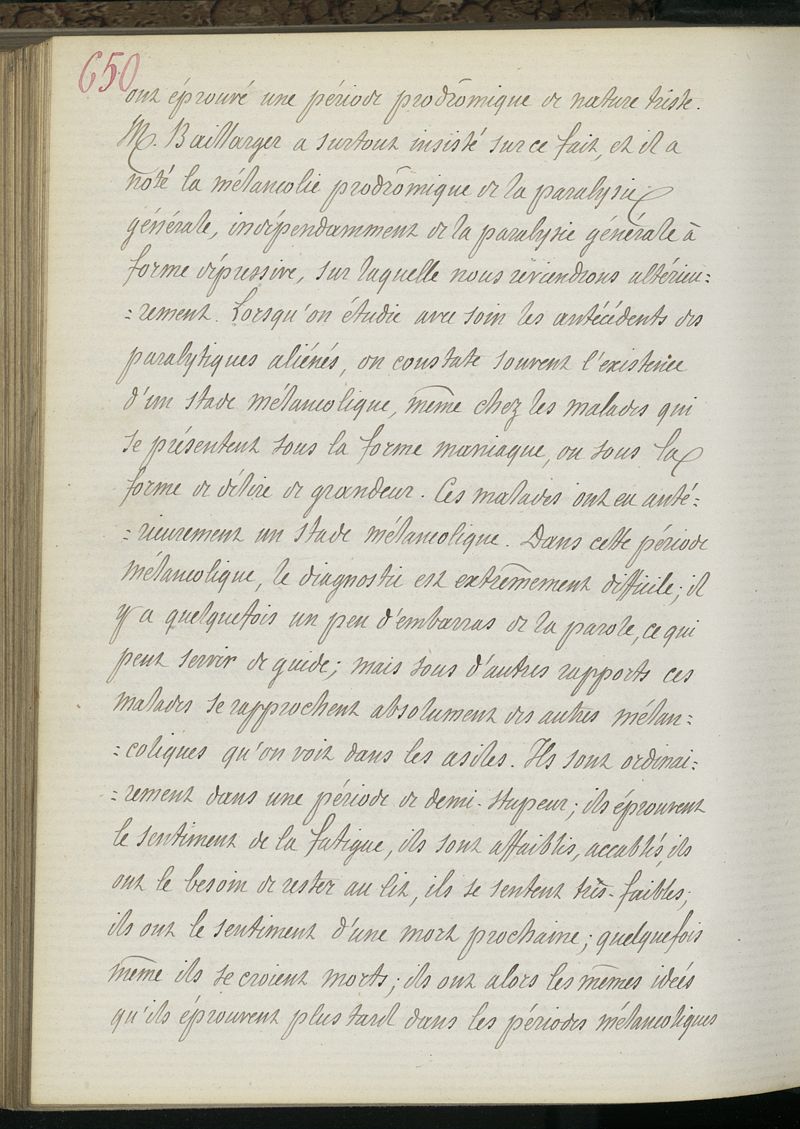 650
ont éprouvé une période prodrômique de nature triste.
M. Baillarger a surtout insisté sur ce fait, et il a
noté la mélancolie prodrômique de la paralysie
générale, indépendamment de la paralysie générale à
forme dépressive, sur laquelle nous reviendrons ultérieu=
=rement. Lorsqu'on étudie avec soin les antécédents des
paralytiques aliénés, on constate souvent l'existence
d'un stade mélancolique, même chez les malades qui
se présentent sous la forme maniaque, ou sous la
forme de délire de grandeur. Ces malades ont eu anté=
=rieurement un stade mélancolique. Dans cette période
mélancolique, le diagnostic est extrêmement difficile; il
y a quelquefois un peu d'embarras de la parole, ce qui
peut servir de guide; mais sous d'autres rapports ces
malades se rapprochent absolument des autres mélan=
=coliques qu'on voit dans les asiles. Ils sont ordinai=
=rement dans une période de demi-stupeur; ils éprouvent
le sentiment de la fatigue, ils sont affaiblis, accablés, ils
ont le besoin de rester au lit, ils se sentent très-faibles;
ils ont le sentiment d'une mort prochaine; quelquefois
même ils se croient morts; ils ont alors les mêmes idées
qu'ils éprouvent plus tard dans les périodes mélancoliques